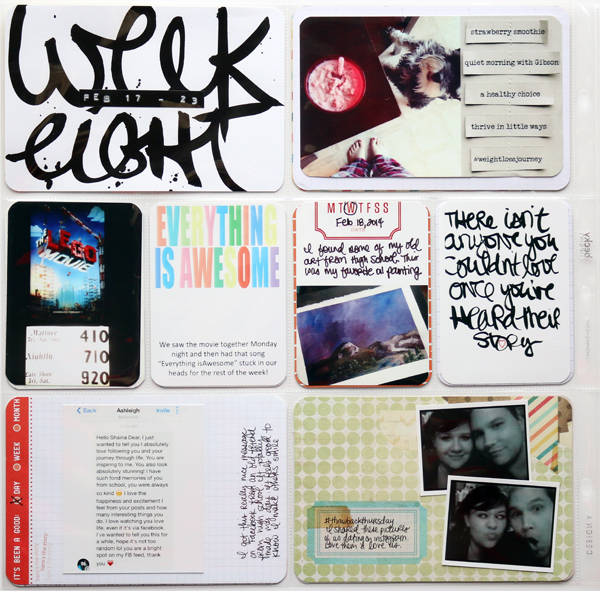 week
FEB 17 - 23
eight
strawberry smoothie
quiet morning with Gibson
a healthy choice
thrive in little ways
#weightlossjourney
LEGO
MOVIE
Matinee
410
Nightly
710
Late Show
920
EVERYTHING
IS AWESOME
We saw the movie together Monday
night and then had that song
"Everything isAwesome" stuck in our
heads for the rest of the week!
MTWTFSS
DATE
Feb 18, 2014
I found some of my old
art from High School. This
was my favorite oil painting.
THERE isn't
anyone you
couldn't love
once you've
HEARD their
story
IT'S BEEN A GOOD DAY WEEK MONTH
Back
Ashleigh
Invite
Hello Shaina Dear, I just
wanted to tell you I absolutely
love following you and your
journey through life. You are
inspiring to me. You also look
absolutely stunning! I have
such fond memories of you
from school, you were always
so kind 😊 I love the
happiness and excitement I
feel from your posts and how
many interesting things you
do. I love watching you love
life, even if it is via facebook.
I've wanted to tell you this for
a while, hope it's not too
random lol you are a bright
spot on my FB feed, thank
you ❤
I got this really nice message
on Facebook from an old friend
from high school. It really
made my day. It feels good to
know I make others smile
#throwbackthursday
I shared these pictures
of us dating on instagram
Love them & love us.